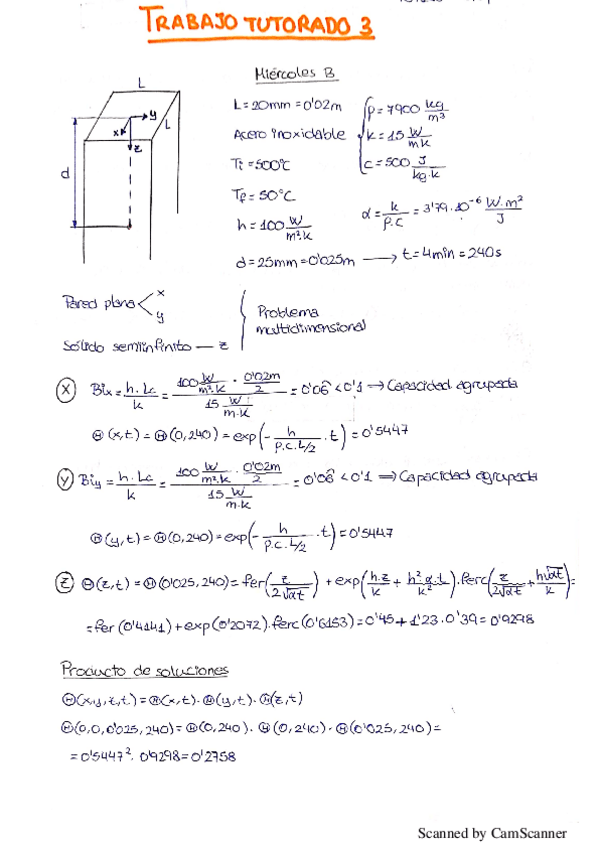 TRABAJO TUTORADO 3
Miércoles B
L = 20mm = 0'02m
Acero inoxidable
Ti = 500°C
Tf = 50°C
h = 100 W/m².K
d = 25mm = 0'025m → t = 4min = 240s
ρ = 7900 kg/m³
k = 15 W/mK
c = 500 J/kg.K
α = k/ρ.c = 3'79.10⁻⁶ W.m²/J
L
L
x
y
z
d
Pared plana < x
y
Sólido semiinfinito — z
Problema
multidimensional
(X) Bix = h.Lc/k = (100 W/m².K . 0'02m/2)/(15 W/m.K) = 0'06̂ < 0'1 → Capacidad agrupada
Θ(x,t) = Θ(0,240) = exp(-h/(ρ.c.L/2) . t) = 0'5447
(Y) Biy = h.Lc/k = (100 W/m².K . 0'02m/2)/(15 W/m.K) = 0'06̂ < 0'1 ⇒ Capacidad agrupada
Θ(y,t) = Θ(0,240) = exp(-h/(ρ.c.L/2) . t) = 0'5447
(Z) Θ(z,t) = Θ(0'025,240) = fer(z/2√αt) + exp(h.z/k + h².α.t/k²).ferc(z/2√αt + h√αt/k) =
= fer(0'4141) + exp(0'2072).ferc(0'6153) = 0'45 + 1'23.0'39 = 0'9298
Producto de soluciones
Θ(x,y,z,t) = Θ(x,t).Θ(y,t).Θ(z,t)
Θ(0,0,0'025,240) = Θ(0,240).Θ(0,240).Θ(0'025,240) =
= 0'5447².0'9298 = 0'2758
Scanned by CamScanner